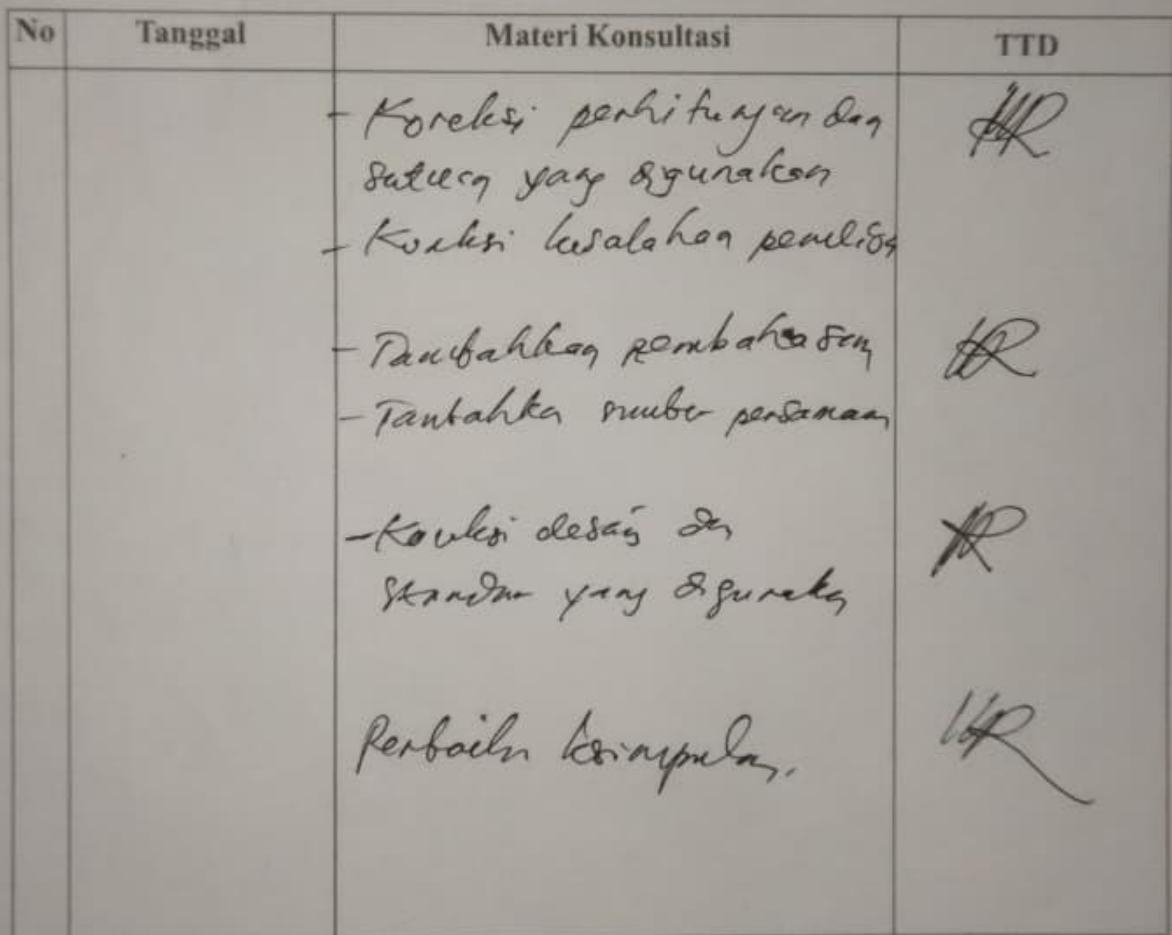 No Tanggal Materi Konsultasi TTD
- Koreksi perhitungan dan
satuan yang digunakan
- Koreksi kesalahan penulisan
- Tambahkan pembahasan
- Tambahkan sumber persamaan
- Koreksi desain dan
standar yang digunakan
Perbaiki kesimpulan.